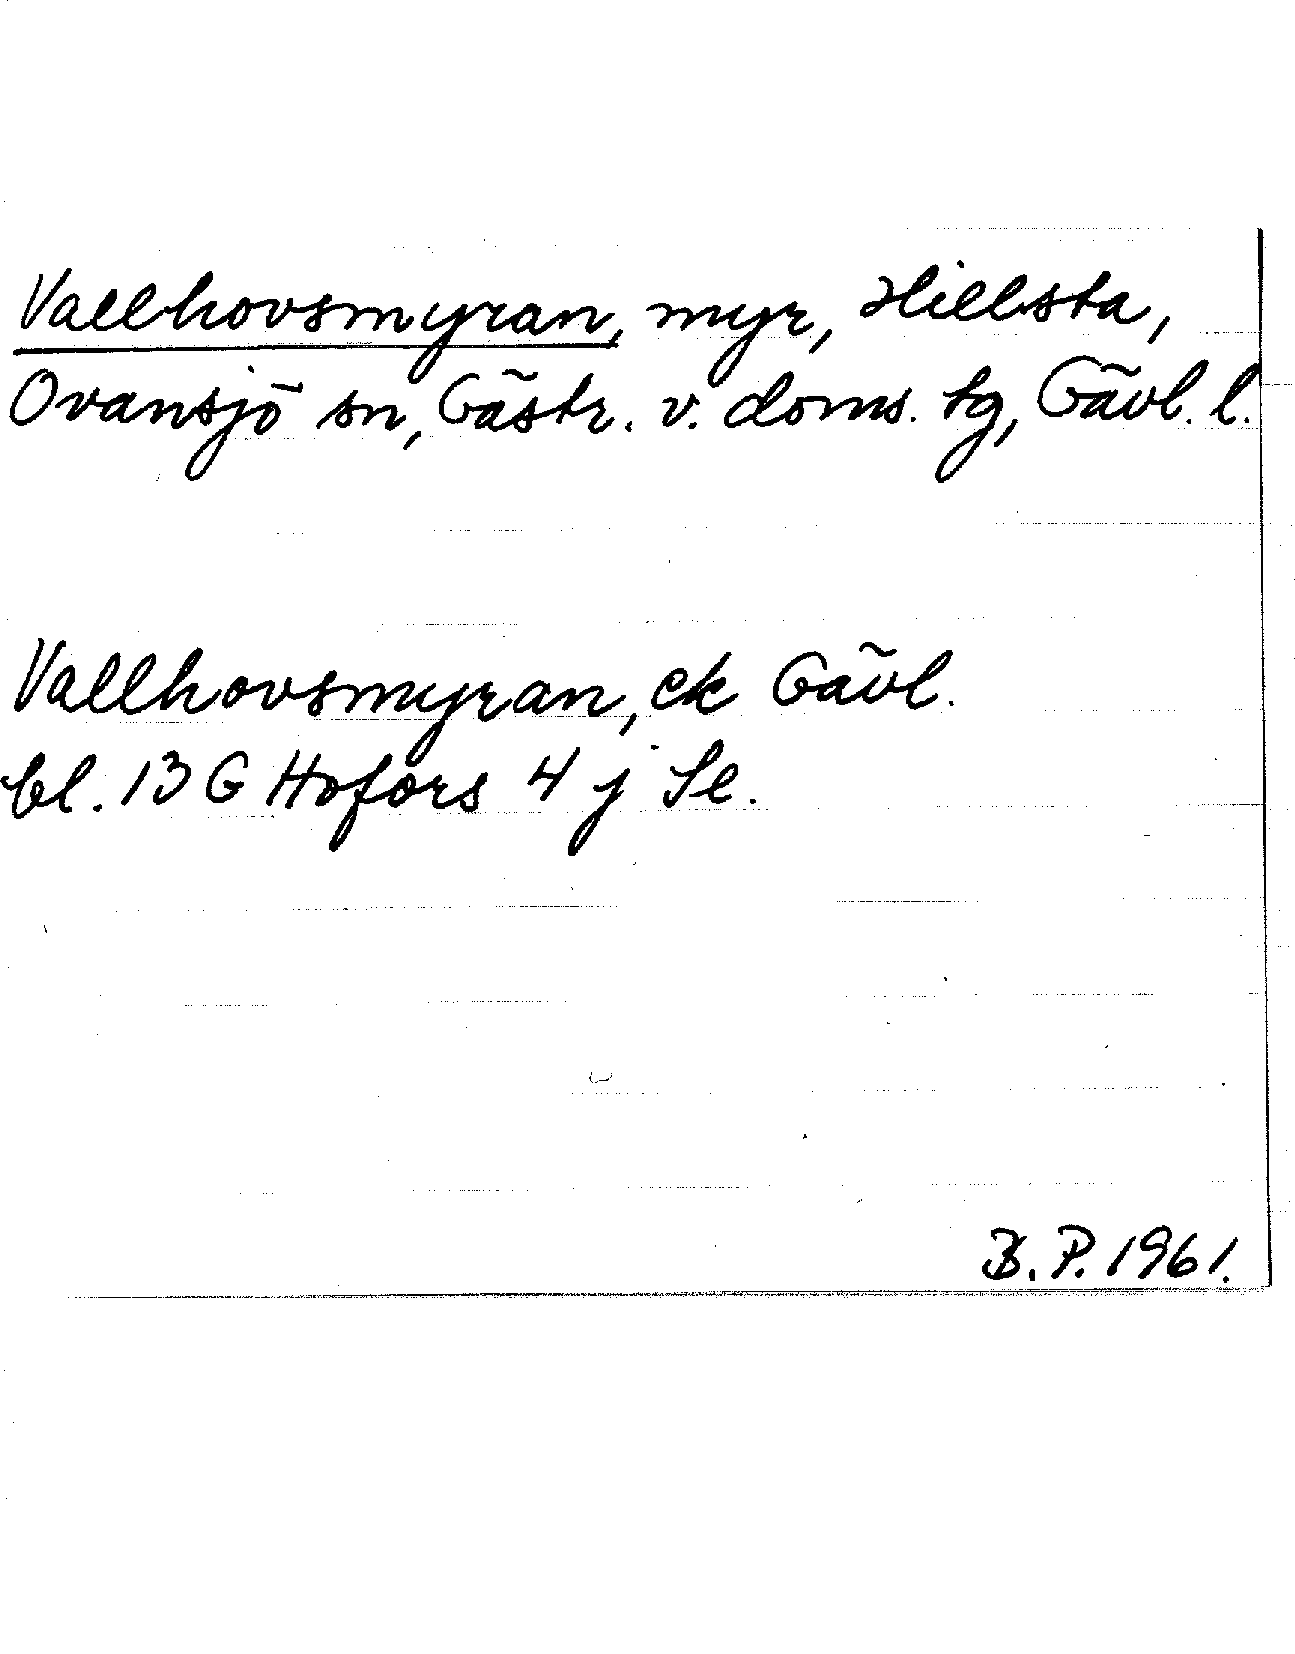 Vallhovsmyran, myr, Hillsta,
Ovansjö sn, Gästr. v. doms. tg, Gävl. l.
Vallhovsmyran, ek Gävl.
bl. 13 G Hofors 4 j Se.
B. P. 1961.